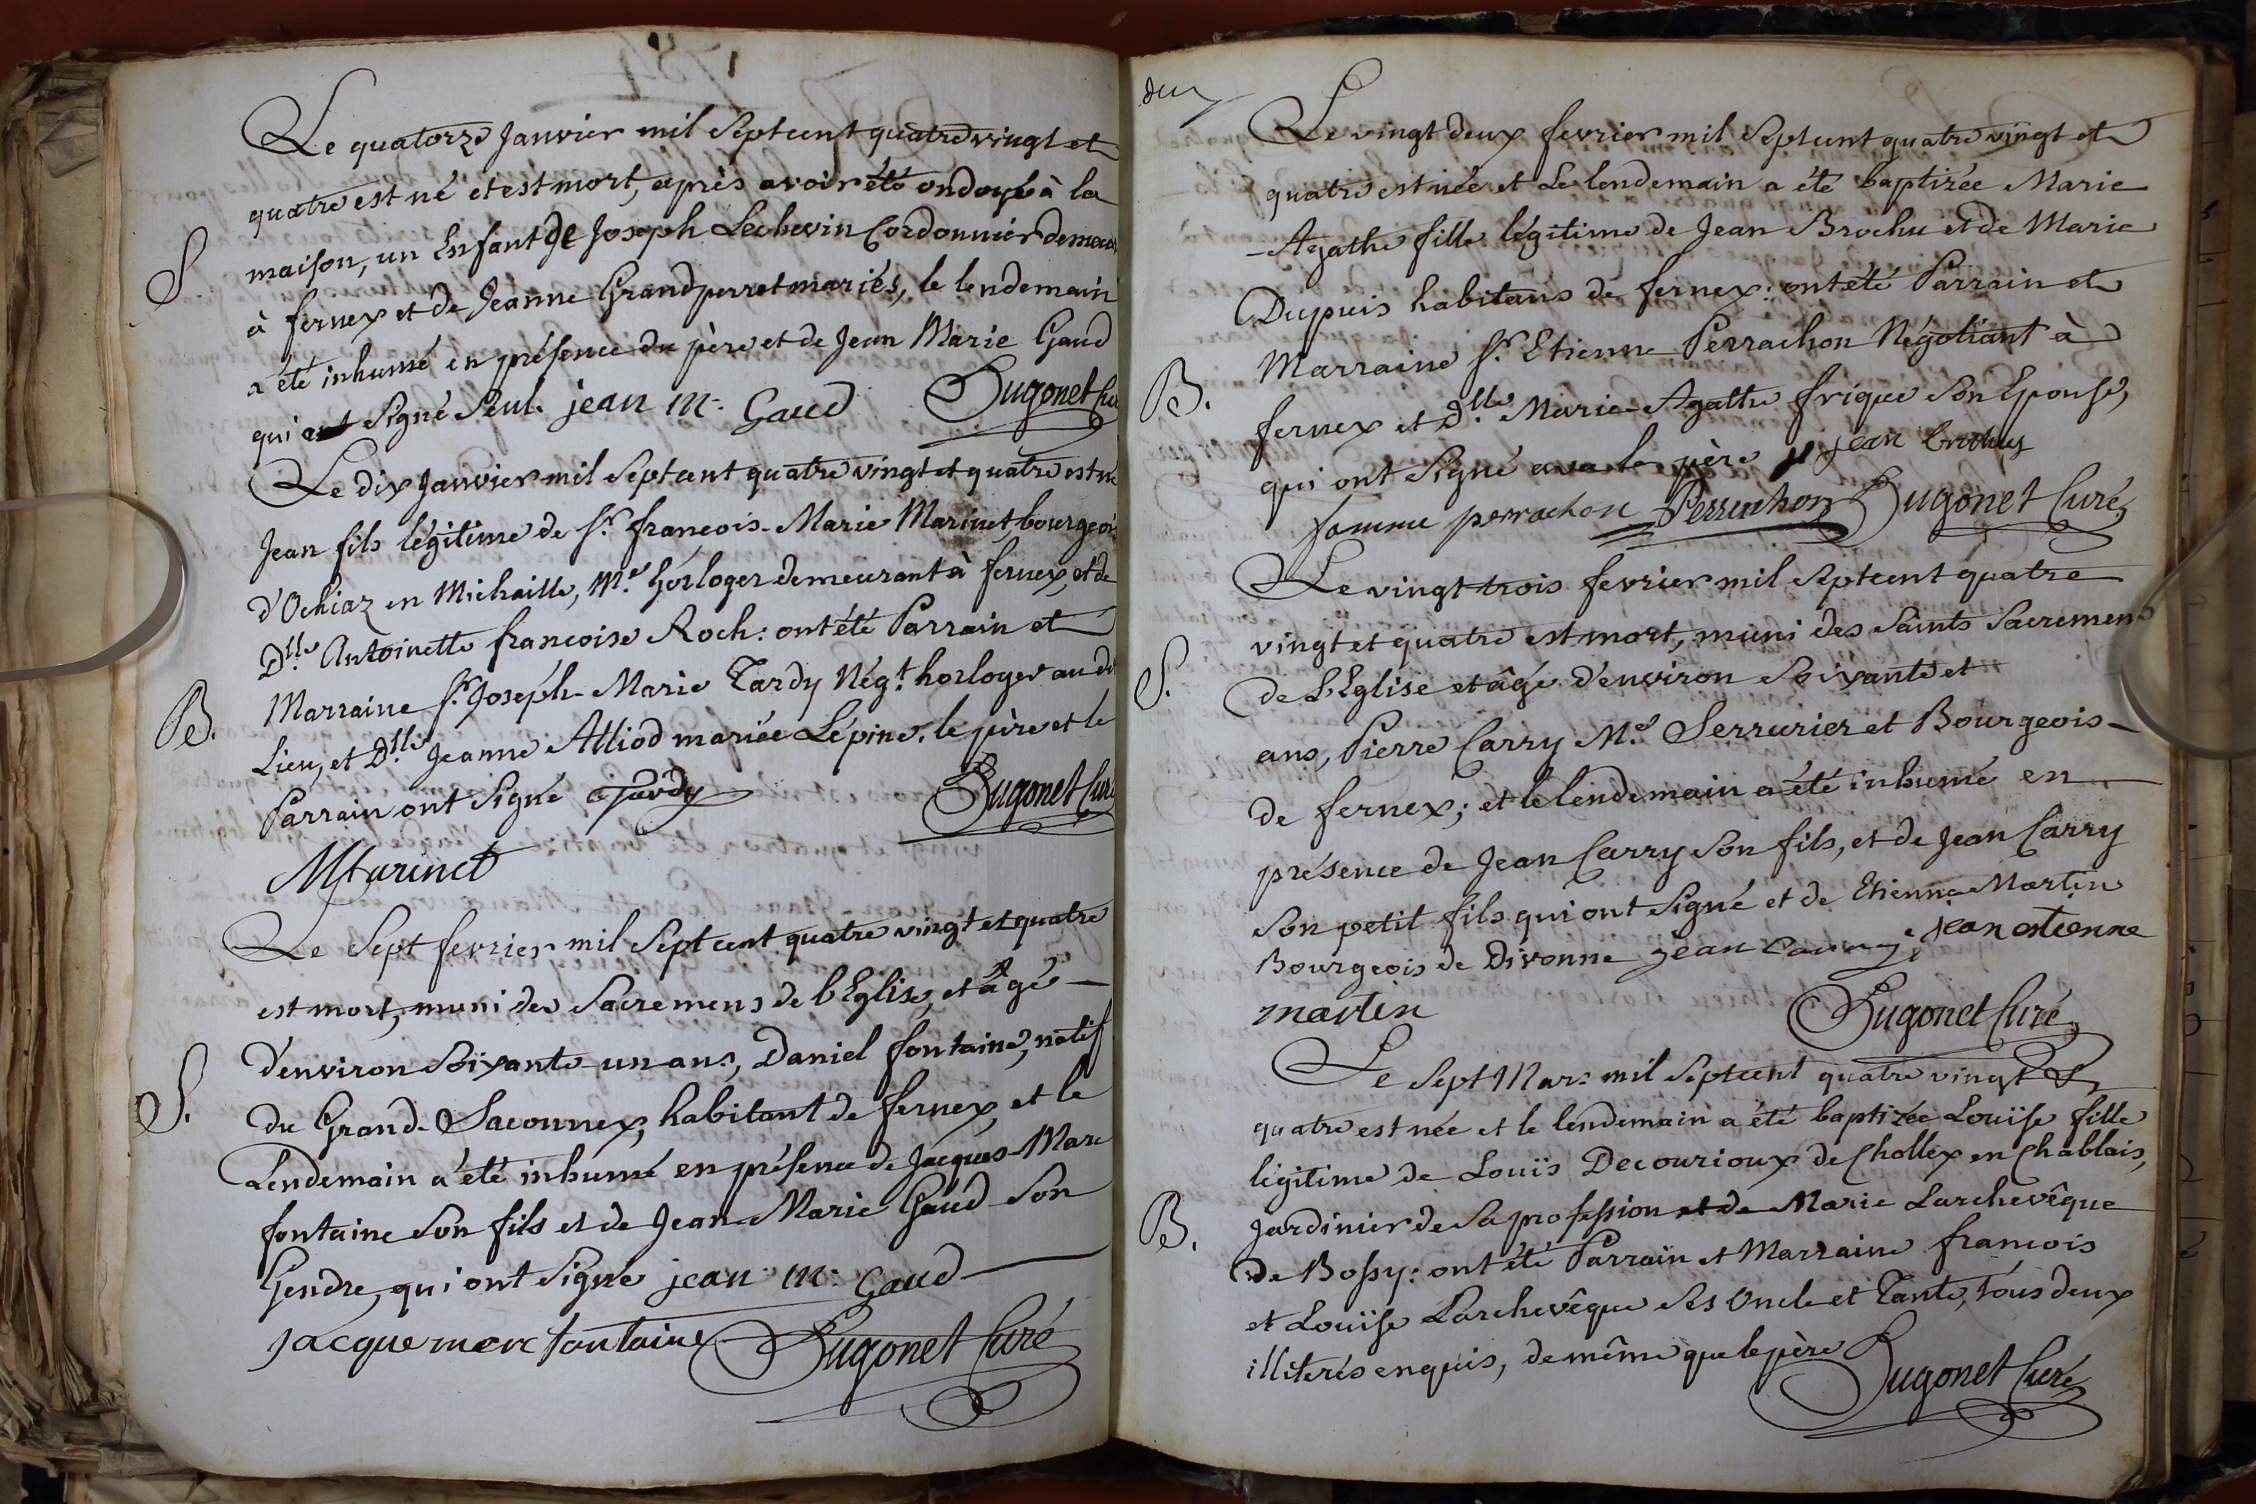 Le quatorze Janvier mil Sept cent quatre vingt et
quatre est né et est mort, après avoir été ondoyé à la
S maison, un Enfant de Joseph Lechevin Cordonnier demeur
à fernex et de Jeanne Grandperret mariés, le lendemain
a été inhumé en présence du père et de Jean Marie Gaud
qui ont Signé Seul. jean m. Gaud Dugonet Cu
Le dix Janvier mil Sept cent quatre vingt et quatre est né
Jean fils légitime de Sr. francois-Marie Marinet, bourgeois
d'Ochiaz en Michaille, Me. horloger demeurant à fernex, et de
Dlle Antoinette francoise Roch: ont été Parrain et
Marraine Sr. Joseph-Marie Tardy Négt. horloger au dt
B. Lieu, et Dlle Jeanne Alliod mariée Lépine. le père et le
Parrain ont Signé Tardy Dugonet Curé
Marinet
Le Sept fevrier mil Sept cent quatre vingt et quatre
est mort, muni des Sacremens de l'Eglise, et âgé
d'environ Soixante-un-ans, Daniel fontaine, natif
S. du Grand-Saconnex, habitant de fernex, et le
Lendemain a été inhumé en présence de Jacques-Marc
fontaine Son fils et de Jean-Marie Gaud Son
Gendre, qui ont Signé jean m: Gaud
Jacque merc fontaine Dugonet Curé
deux
Le vingt deux fevrier mil Sept cent quatre vingt et
quatre est née et Le lendemain a été baptizée Marie
-Agathe fille légitime de Jean Brochu et de Marie
Dupuis habitans de fernex: ont été Parrain et
B. Marraine Sr. Etienne Perrachon Négotiant à
fernex et Dlle Marie-Agathe frique Son Epouse,
qui ont Signé avec le père jean brochuy
famme perrachon Perrachon Dugonet Curé,
Le vingt-trois fevrier mil Sept cent quatre
vingt et quatre est mort, muni des Saints Sacremens
S. de L'Eglise et âgé d'environ Soixante et
ans, Pierre Carry Me. Serrurier et Bourgeois
de fernex; et le lendemain a été inhumé en
présence de Jean Carry Son fils, et de Jean Carry
Son petit fils qui ont Signé et de Etienne Martin
Bourgeois de Divonne jean Carry jean etienne
martin Dugonet Curé,
Le Sept Mars mil Sept cent quatre vingt &
quatre est née et le lendemain a été baptizée Louïse fille
légitime de Louïs Decourioux de Chollex en Chablais,
B. Jardinier de Sa profession et de Marie Larchevêque
de Bossy: ont été Parrain et Marraine francois
et Louïse Larchevêque Ses Oncle et Tante, tous deux
illiterés enquis, de même que le père Dugonet Curé